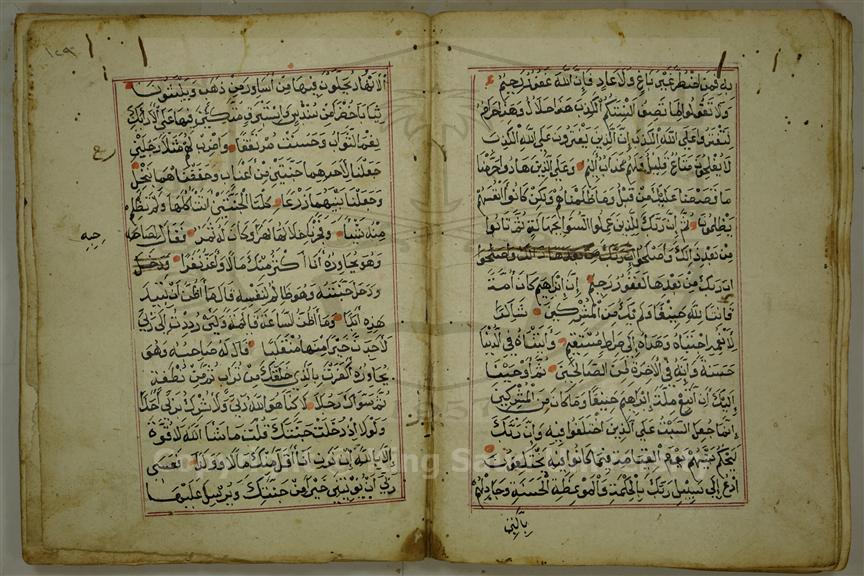 به فمن اضطر غير باغ ولا عاد فإن الله غفور رحيم
ولا تقولوا لما تصف ألسنتكم الكذب هذا حلال وهذا حرام
لتفتروا على الله الكذب إن الذين يفترون على الله الكذب
لا يفلحون متاع قليل ولهم عذاب أليم وعلى الذين هادوا حرمنا
ما قصصنا عليك من قبل وما ظلمناهم ولكن كانوا أنفسهم
يظلمون ثم إن ربك للذين عملوا السوء بجهالة ثم تابوا
من بعد ذلك وأصلحوا إن ربك من بعدها ذلك وأصلحوا
إن ربك من بعدها لغفور رحيم إن إبراهيم كان أمة
قانتا لله حنيفا ولم يك من المشركين شاكرا
لأنعمه اجتباه وهداه إلى صراط مستقيم وآتيناه في الدنيا
حسنة وإنه في الآخرة لمن الصالحين ثم أوحينا
إليك أن اتبع ملة إبراهيم حنيفا وما كان من المشركين
إنما جعل السبت على الذين اختلفوا فيه وإن ربك
ليحكم بينهم يوم القيامة فيما كانوا فيه يختلفون
ادع إلى سبيل ربك بالحكمة والموعظة الحسنة وجادلهم
بالتي
١٢٩
الأنهار يحلون فيها من أساور من ذهب ويلبسون
ثيابا خضرا من سندس وإستبرق متكئين فيها على الأرائك
نعم الثواب وحسنت مرتفقا واضرب لهم مثلا رجلين
جعلنا لأحدهما جنتين من أعناب وحففناهما بنخل
وجعلنا بينهما زرعا كلتا الجنتين آتت أكلها ولم تظلم
منه شيئا وفجرنا خلالهما نهرا وكان له ثمر فقال لصاحبه
وهو يحاوره أنا أكثر منك مالا وأعز نفرا ودخل
ودخل جنته وهو ظالم لنفسه قال ما أظن أن تبيد
هذه أبدا وما أظن الساعة قائمة ولئن رددت إلى ربي
لأجدن خيرا منها منقلبا قال له صاحبه وهو
يحاوره أكفرت بالذي خلقك من تراب ثم من نطفة
ثم سواك رجلا لكنا هو الله ربي ولا أشرك بربي أحدا
ولولا إذ دخلت جنتك قلت ما شاء الله لا قوة
إلا بالله إن ترن أنا أقل منك مالا وولدا فعسى
ربي أن يؤتين خيرا من جنتك ويرسل عليها